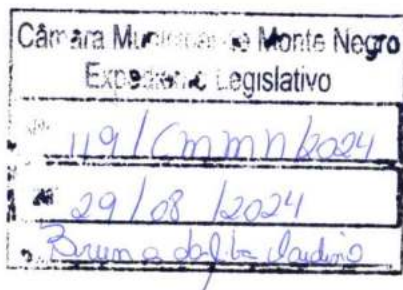 Câmara Municipal de Monte Negro
Expediente Legislativo
119/CMMN/2024
29/08/2024
Bruna